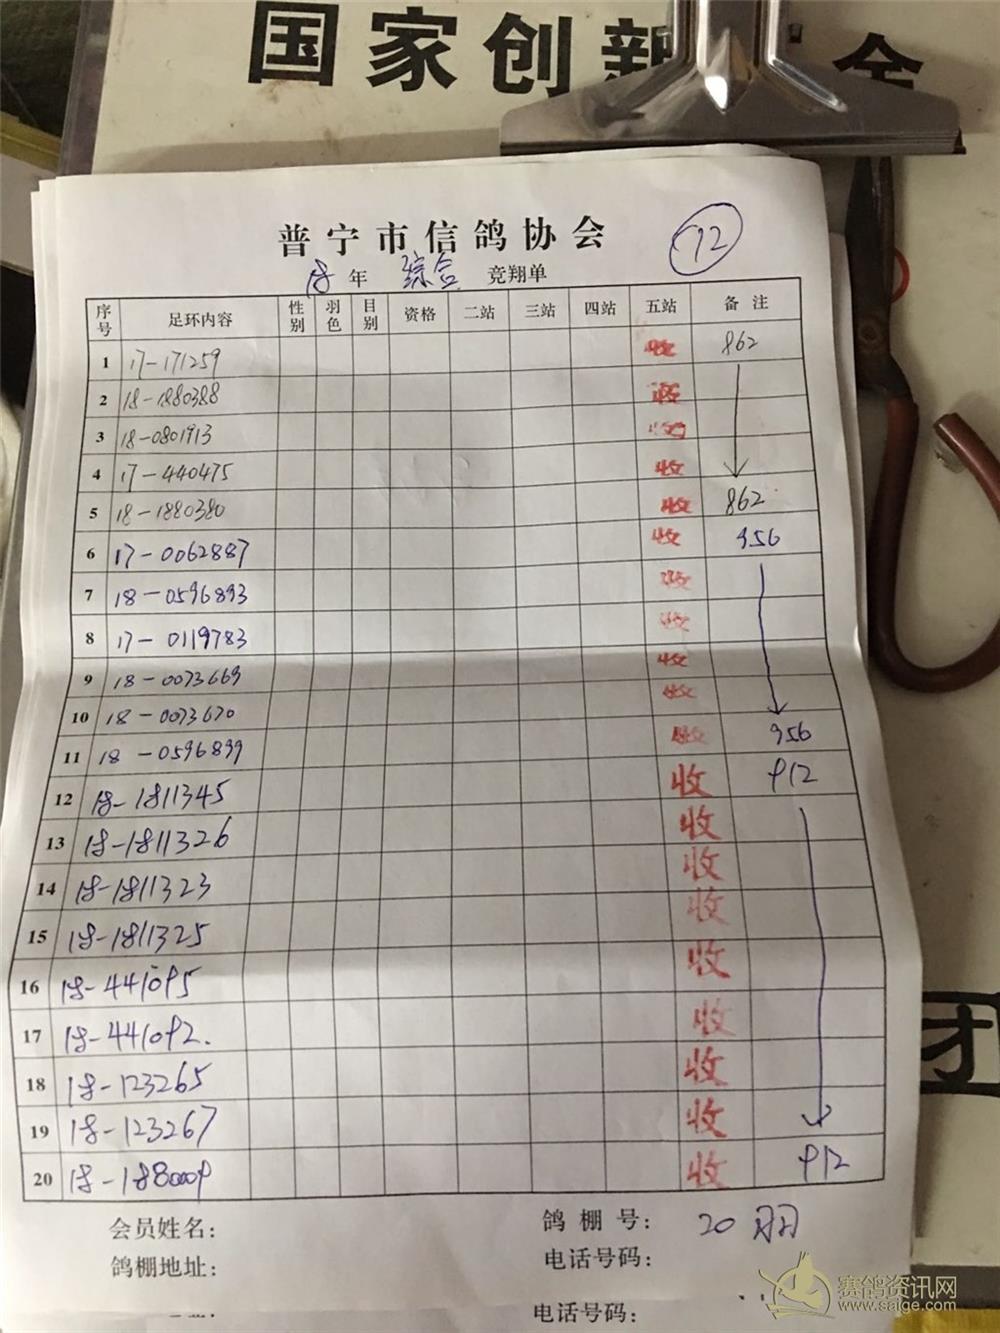 国家创新
普宁市信鸽协会
12
18年 综合 竞翔单
序号 足环内容 性别 羽色 目别 资格 二站 三站 四站 五站 备注
1 17-171259 收 862
2 18-1880388 收
3 18-0801913 收
4 17-440475 收
5 18-1880380 收 862
6 17-0062887 收 956
7 18-0596893 收
8 17-0119783 收
9 18-0073669 收
10 18-0073670 收
11 18-0596899 收 956
12 18-1811345 收 912
13 18-1811326 收
14 18-1811323 收
15 18-1811325 收
16 18-441095 收
17 18-441092. 收
18 18-123265 收
19 18-123267 收
20 18-1880009 收 912
会员姓名: 鸽棚号: 20 羽
鸽棚地址: 电话号码:
电话号码:
团
赛鸽资讯网
www.saige.com